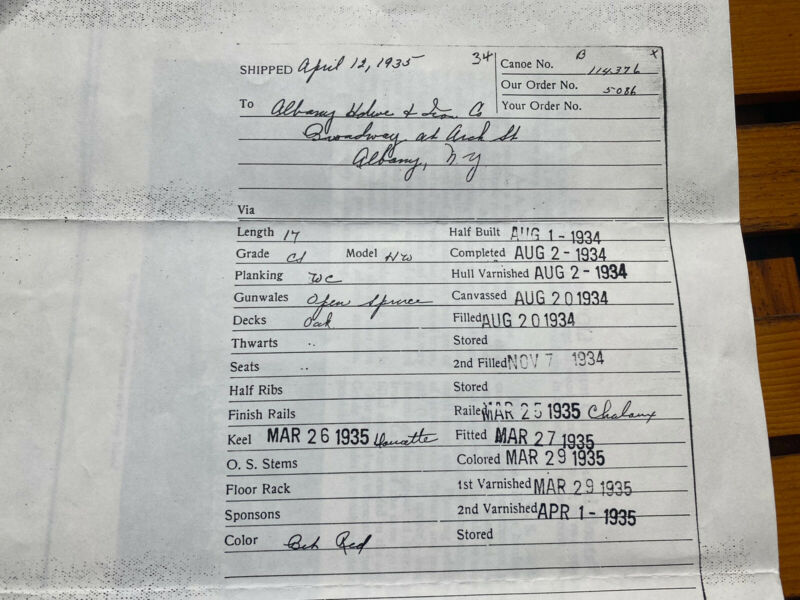 SHIPPED April 12, 1935 34 Canoe No. B 114376 x
Our Order No. 5086
To Albany Hdwe & Iron Co Your Order No.
Broadway at Arch St
Albany, NY
Via
Length 17 Half Built AUG 1 - 1934
Grade CS Model HW Completed AUG 2 - 1934
Planking WC Hull Varnished AUG 2 - 1934
Gunwales Open Spruce Canvassed AUG 20 1934
Decks Oak Filled AUG 20 1934
Thwarts .. Stored
Seats .. 2nd Filled NOV 7 1934
Half Ribs Stored
Finish Rails Railed MAR 25 1935
Keel MAR 26 1935 Fitted MAR 27 1935
O. S. Stems Colored MAR 29 1935
Floor Rack 1st Varnished MAR 29 1935
Sponsons 2nd Varnished APR 1 - 1935
Color Red Stored